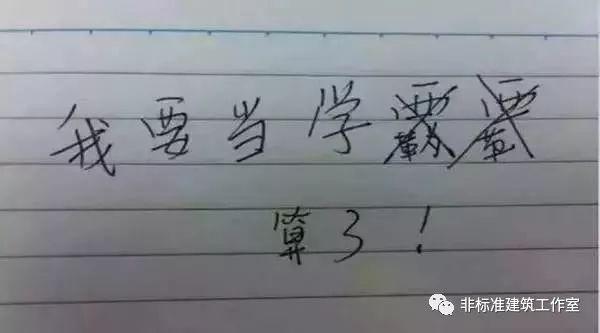 我要当学
算了！
非标准建筑工作室